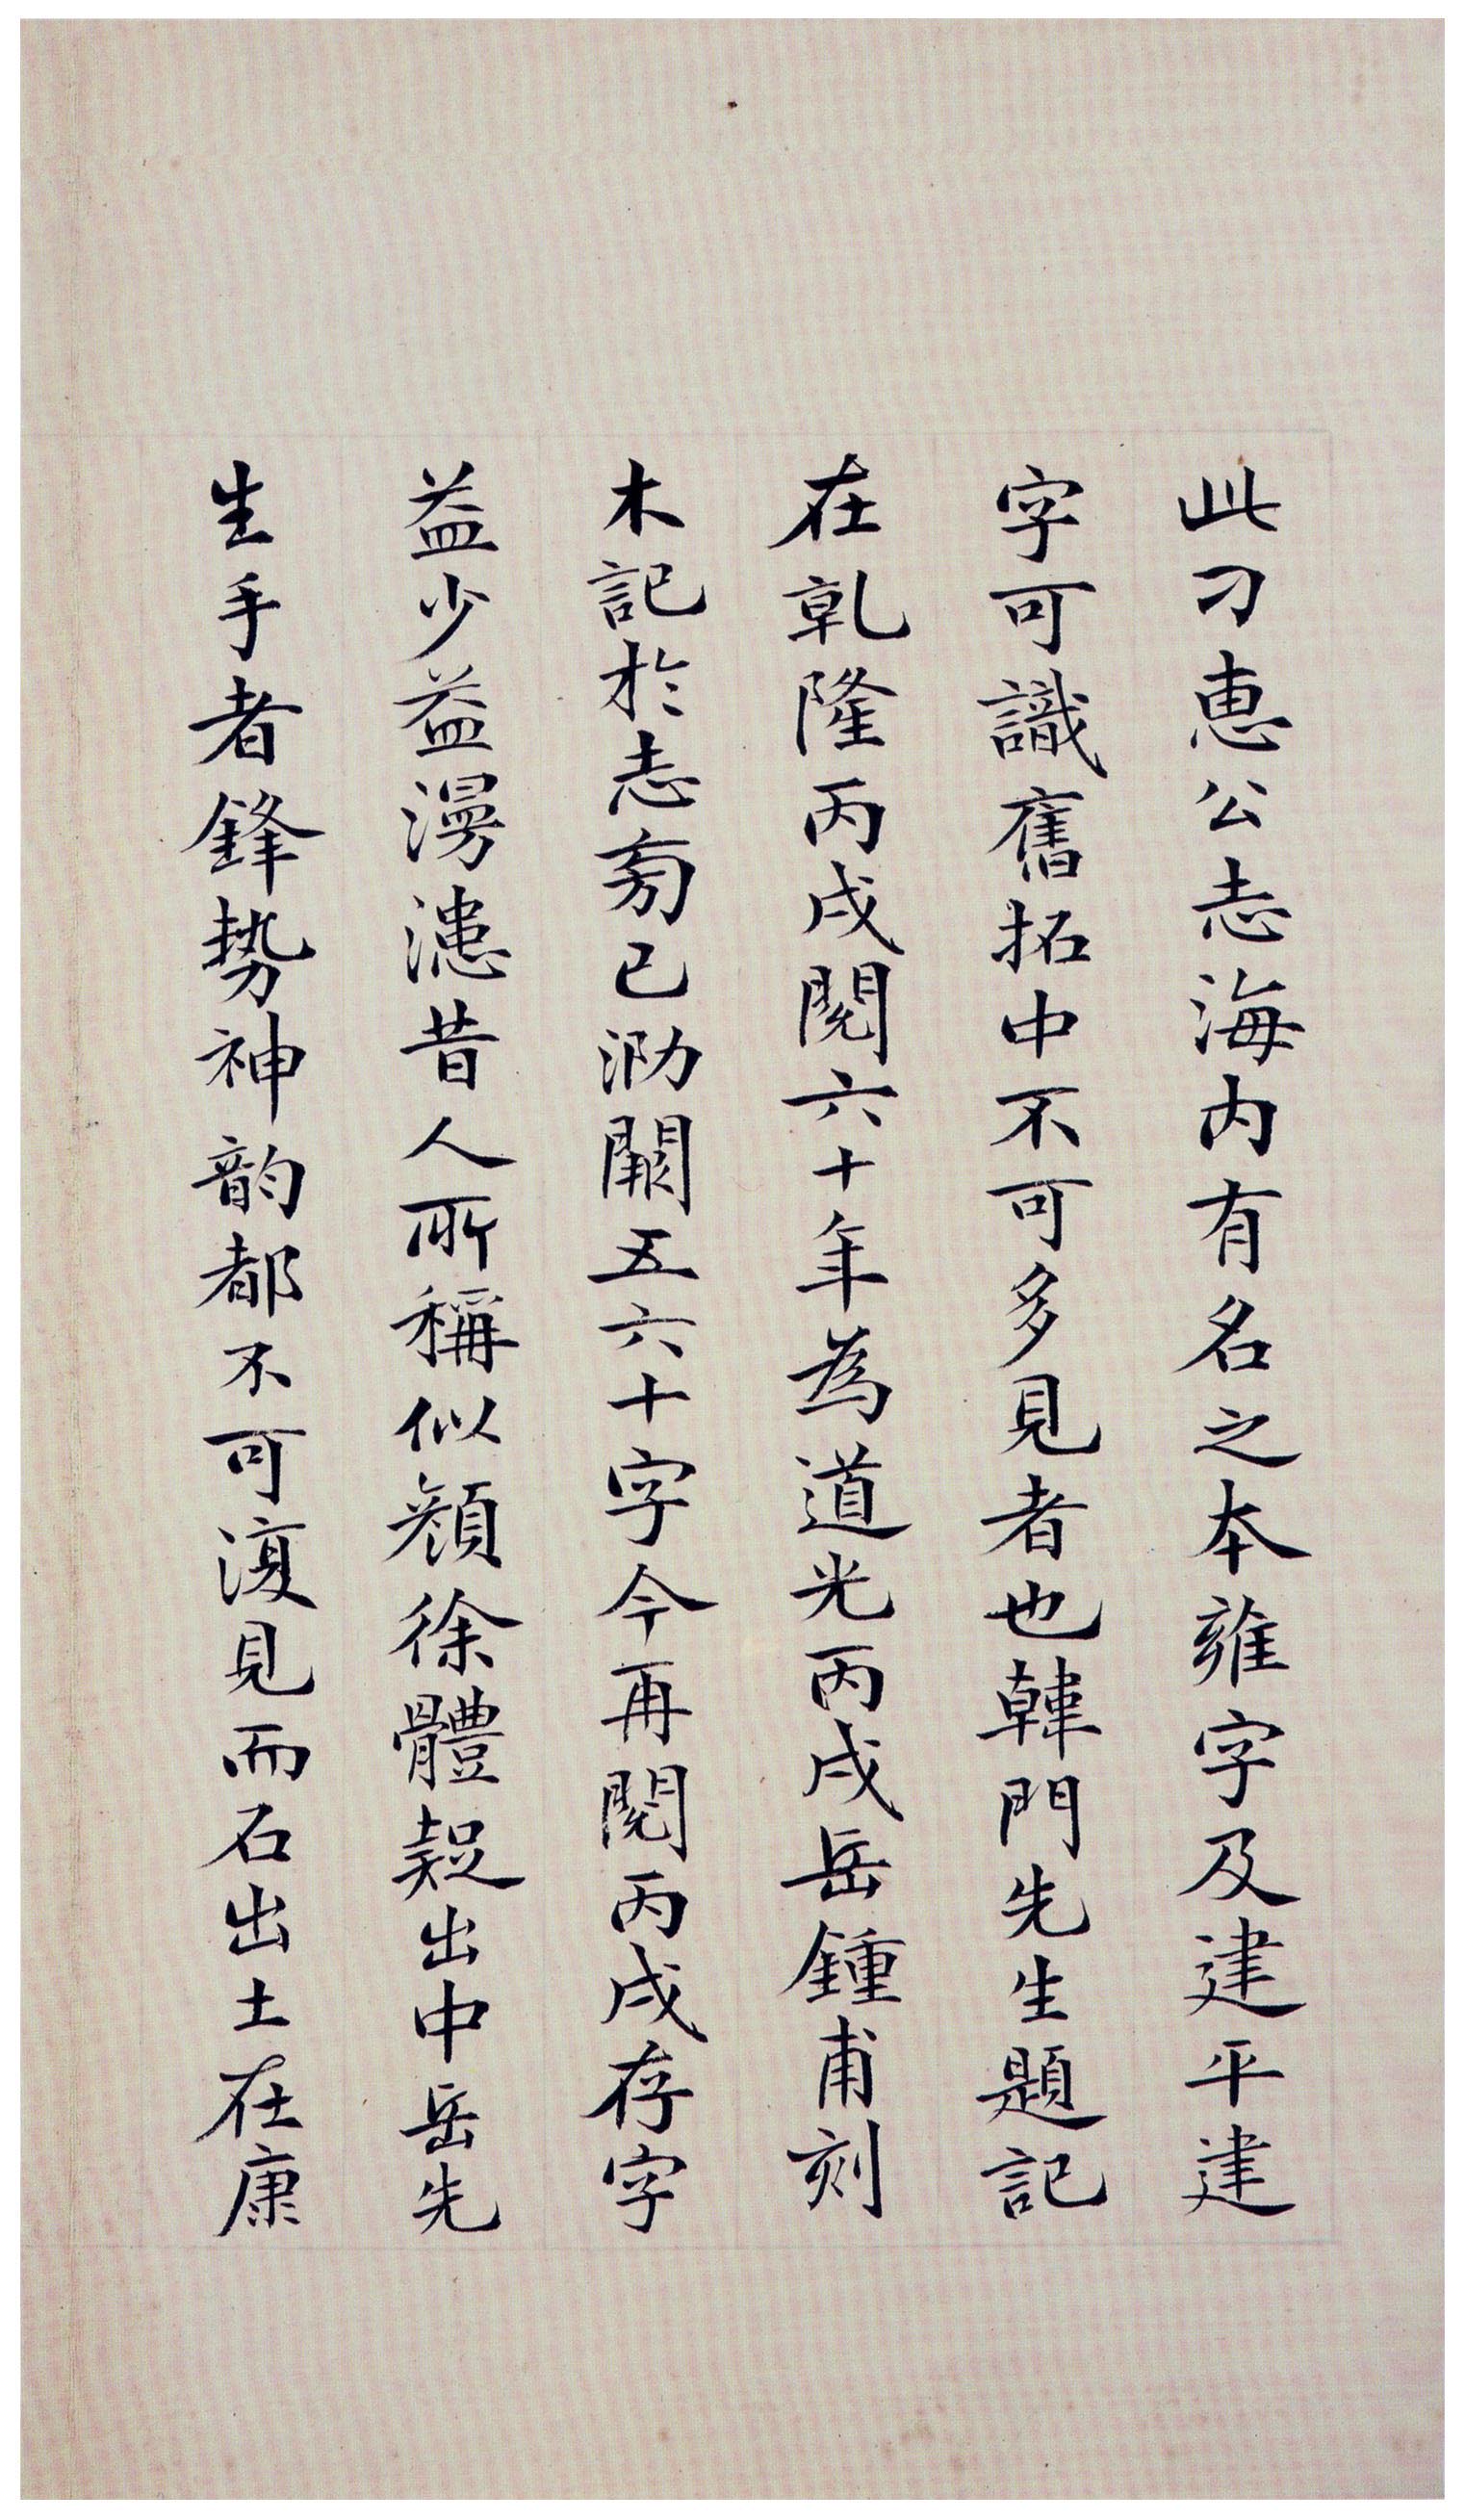 此刁惠公志海內有名之本雍字及建平建
字可識舊拓中不可多見者也韓門先生題記
在乾隆丙戌閱六十年為道光丙戌岳鍾甫刻
木記於志旁已泐闕五六十字今再閱丙戌存字
益少益漫漶昔人所稱似顏徐體疑出中岳先
生手者鋒勢神韵都不可復見而石出土在康